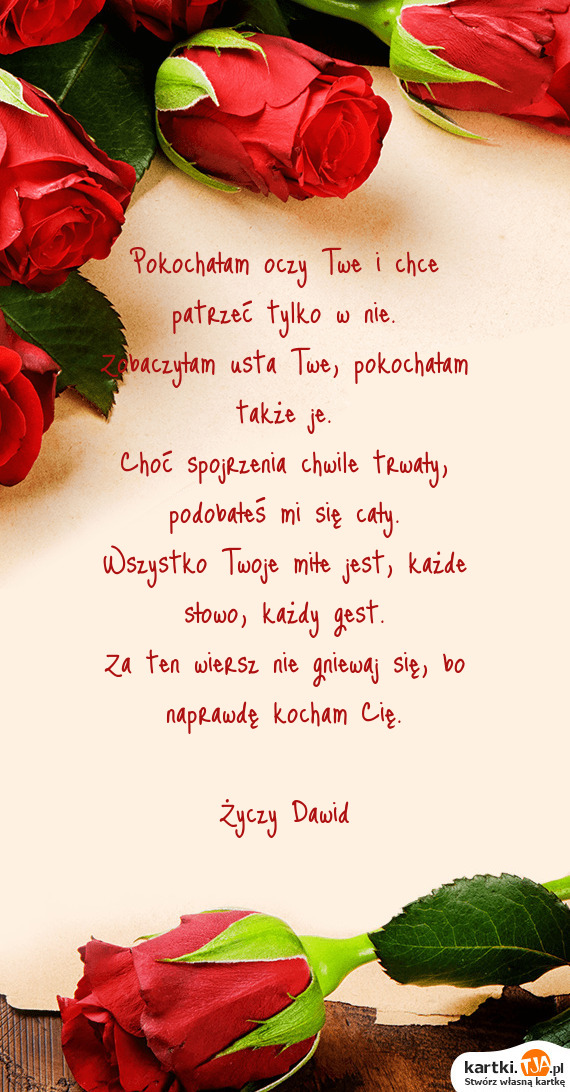 Pokochałam oczy Twe i chce
patrzeć tylko w nie.
Zobaczyłam usta Twe, pokochałam
także je.
Choć spojrzenia chwile trwały,
podobałeś mi się cały.
Wszystko Twoje miłe jest, każde
słowo, każdy gest.
Za ten wiersz nie gniewaj się, bo
naprawdę kocham Cię.
Życzy Dawid
kartki.TJA.pl
Stwórz własną kartkę